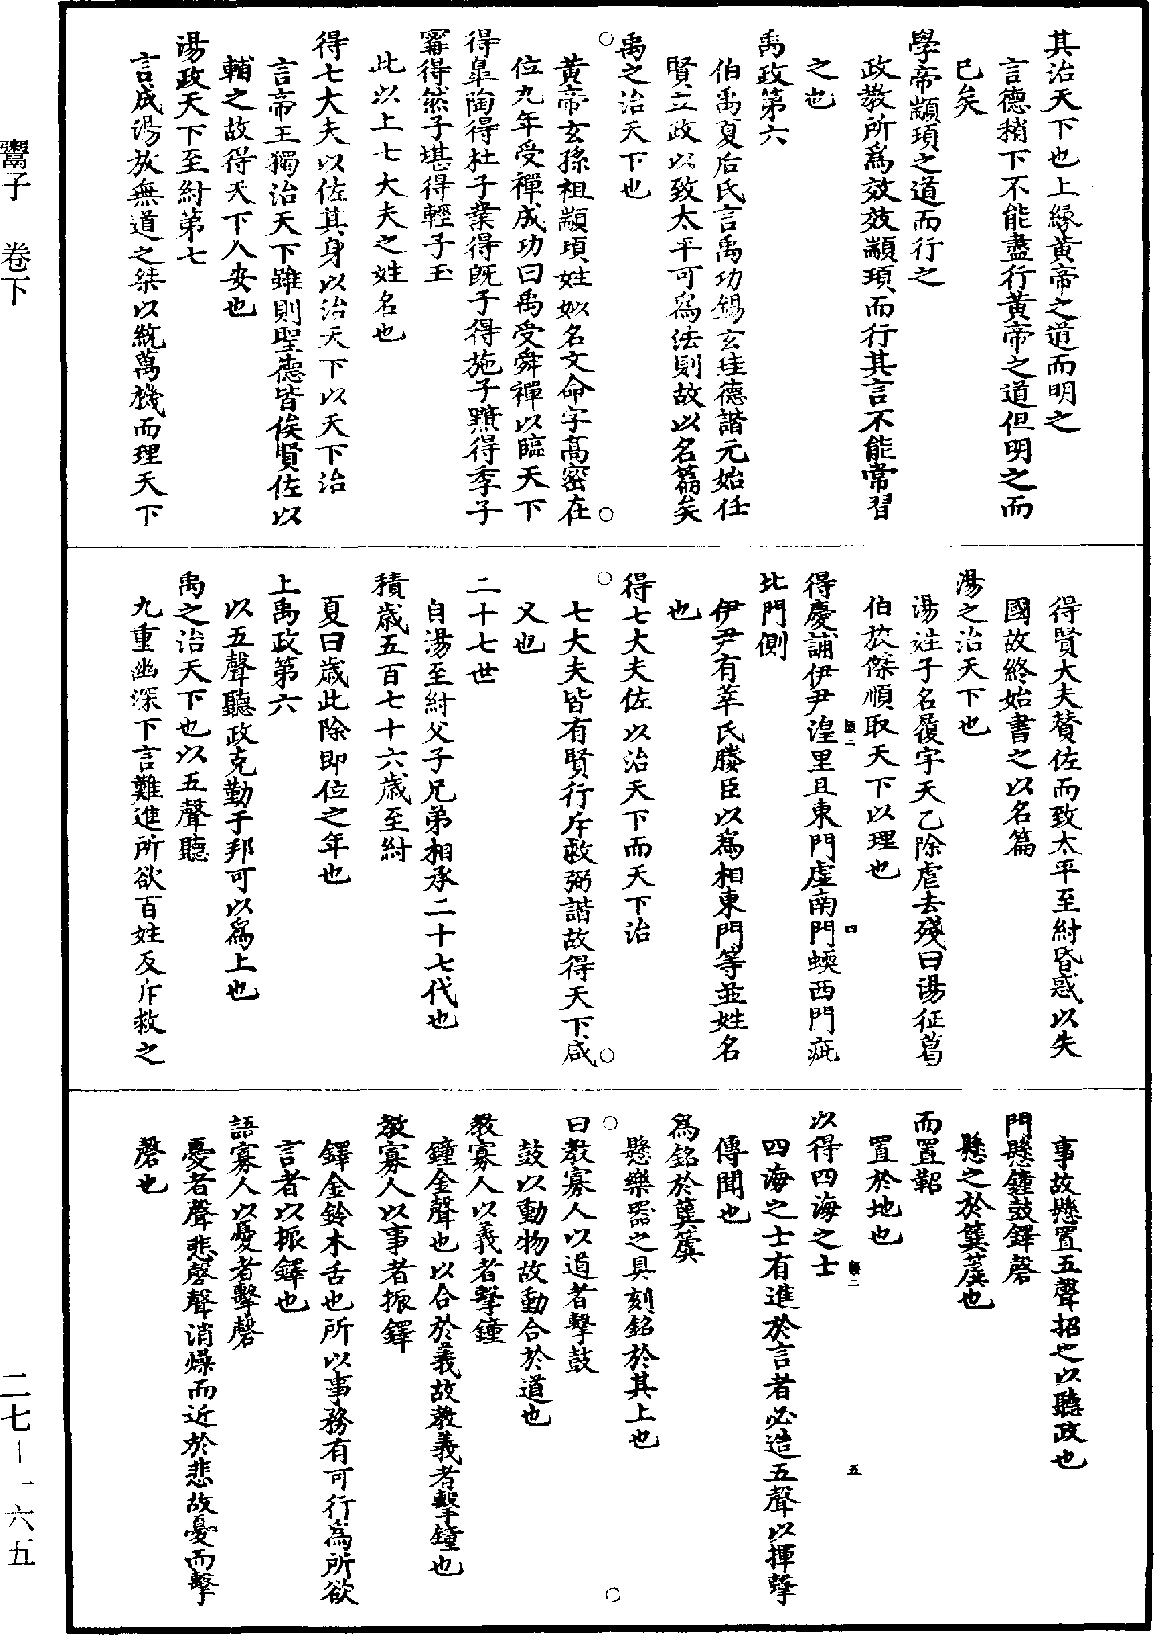 其治天下也上緣黃帝之道而明之
言德稍下不能盡行黃帝之道但明之而
已矣
學帝顓頊之道而行之
政教所爲效效顓頊而行其言不能常習
之也
禹政第六
伯禹夏后氏言禹功錫玄珪德諧元始任
賢立政以致太平可爲法則故以名篇矣
禹之治天下也
黃帝玄孫祖顓頊姓姒名文命字高密在
位九年受禪成功曰禹受舜禪以臨天下
得皐陶得杜子業得既子得施子黯得季子
甯得然子堪得輕子玉
此以上七大夫之姓名也
得七大夫以佐其身以治天下以天下治
言帝王獨治天下雖則聖德皆俟賢佐以
輔之故得天下人安也
湯政天下至紂第七
言成湯放無道之桀以統萬機而理天下
得賢大夫贊佐而致太平至紂昏惑以失
國故終始書之以名篇
湯之治天下也
湯姓子名履字天乙除虐去殘曰湯征葛
伯放傑順取天下以理也
得慶誧伊尹湟里且東門虛南門蝡西門疵
北門側
伊尹有莘氏媵臣以爲相東門等並姓名
也
得七大夫佐以治天下而天下治
七大夫皆有賢行斥救弼諧故得天下咸
乂也
二十七世
自湯至紂父子兄弟相承二十七代也
積歲五百七十六歲至紂
夏曰歲此除即位之年也
上禹政第六
以五聲聽政克勤于邦可以爲上也
禹之治天下也以五聲聽
九重幽深下言難進所欲百姓反斥救之
事故懸置五聲招之以聽政也
門懸鍾鼓鐸磬
懸之於簨簴也
而置鞀
置於地也
以得四海之士
四海之士有進於言者必造五聲以揮擊
傳聞也
爲銘於簨簴
懸樂器之具刻銘於其上也
曰教寡人以道者擊鼓
鼓以動物故動合於道也
教寡人以義者擊鐘
鐘金聲也以合於義故教義者擊鐘也
教寡人以事者振鐸
鐸金鈴木舌也所以事務有可行爲所欲
言者以振鐸也
語寡人以憂者擊磬
憂者聲悲磬聲消燥而近於悲故憂而擊
磬也
鬻子　卷下
二七－一六五